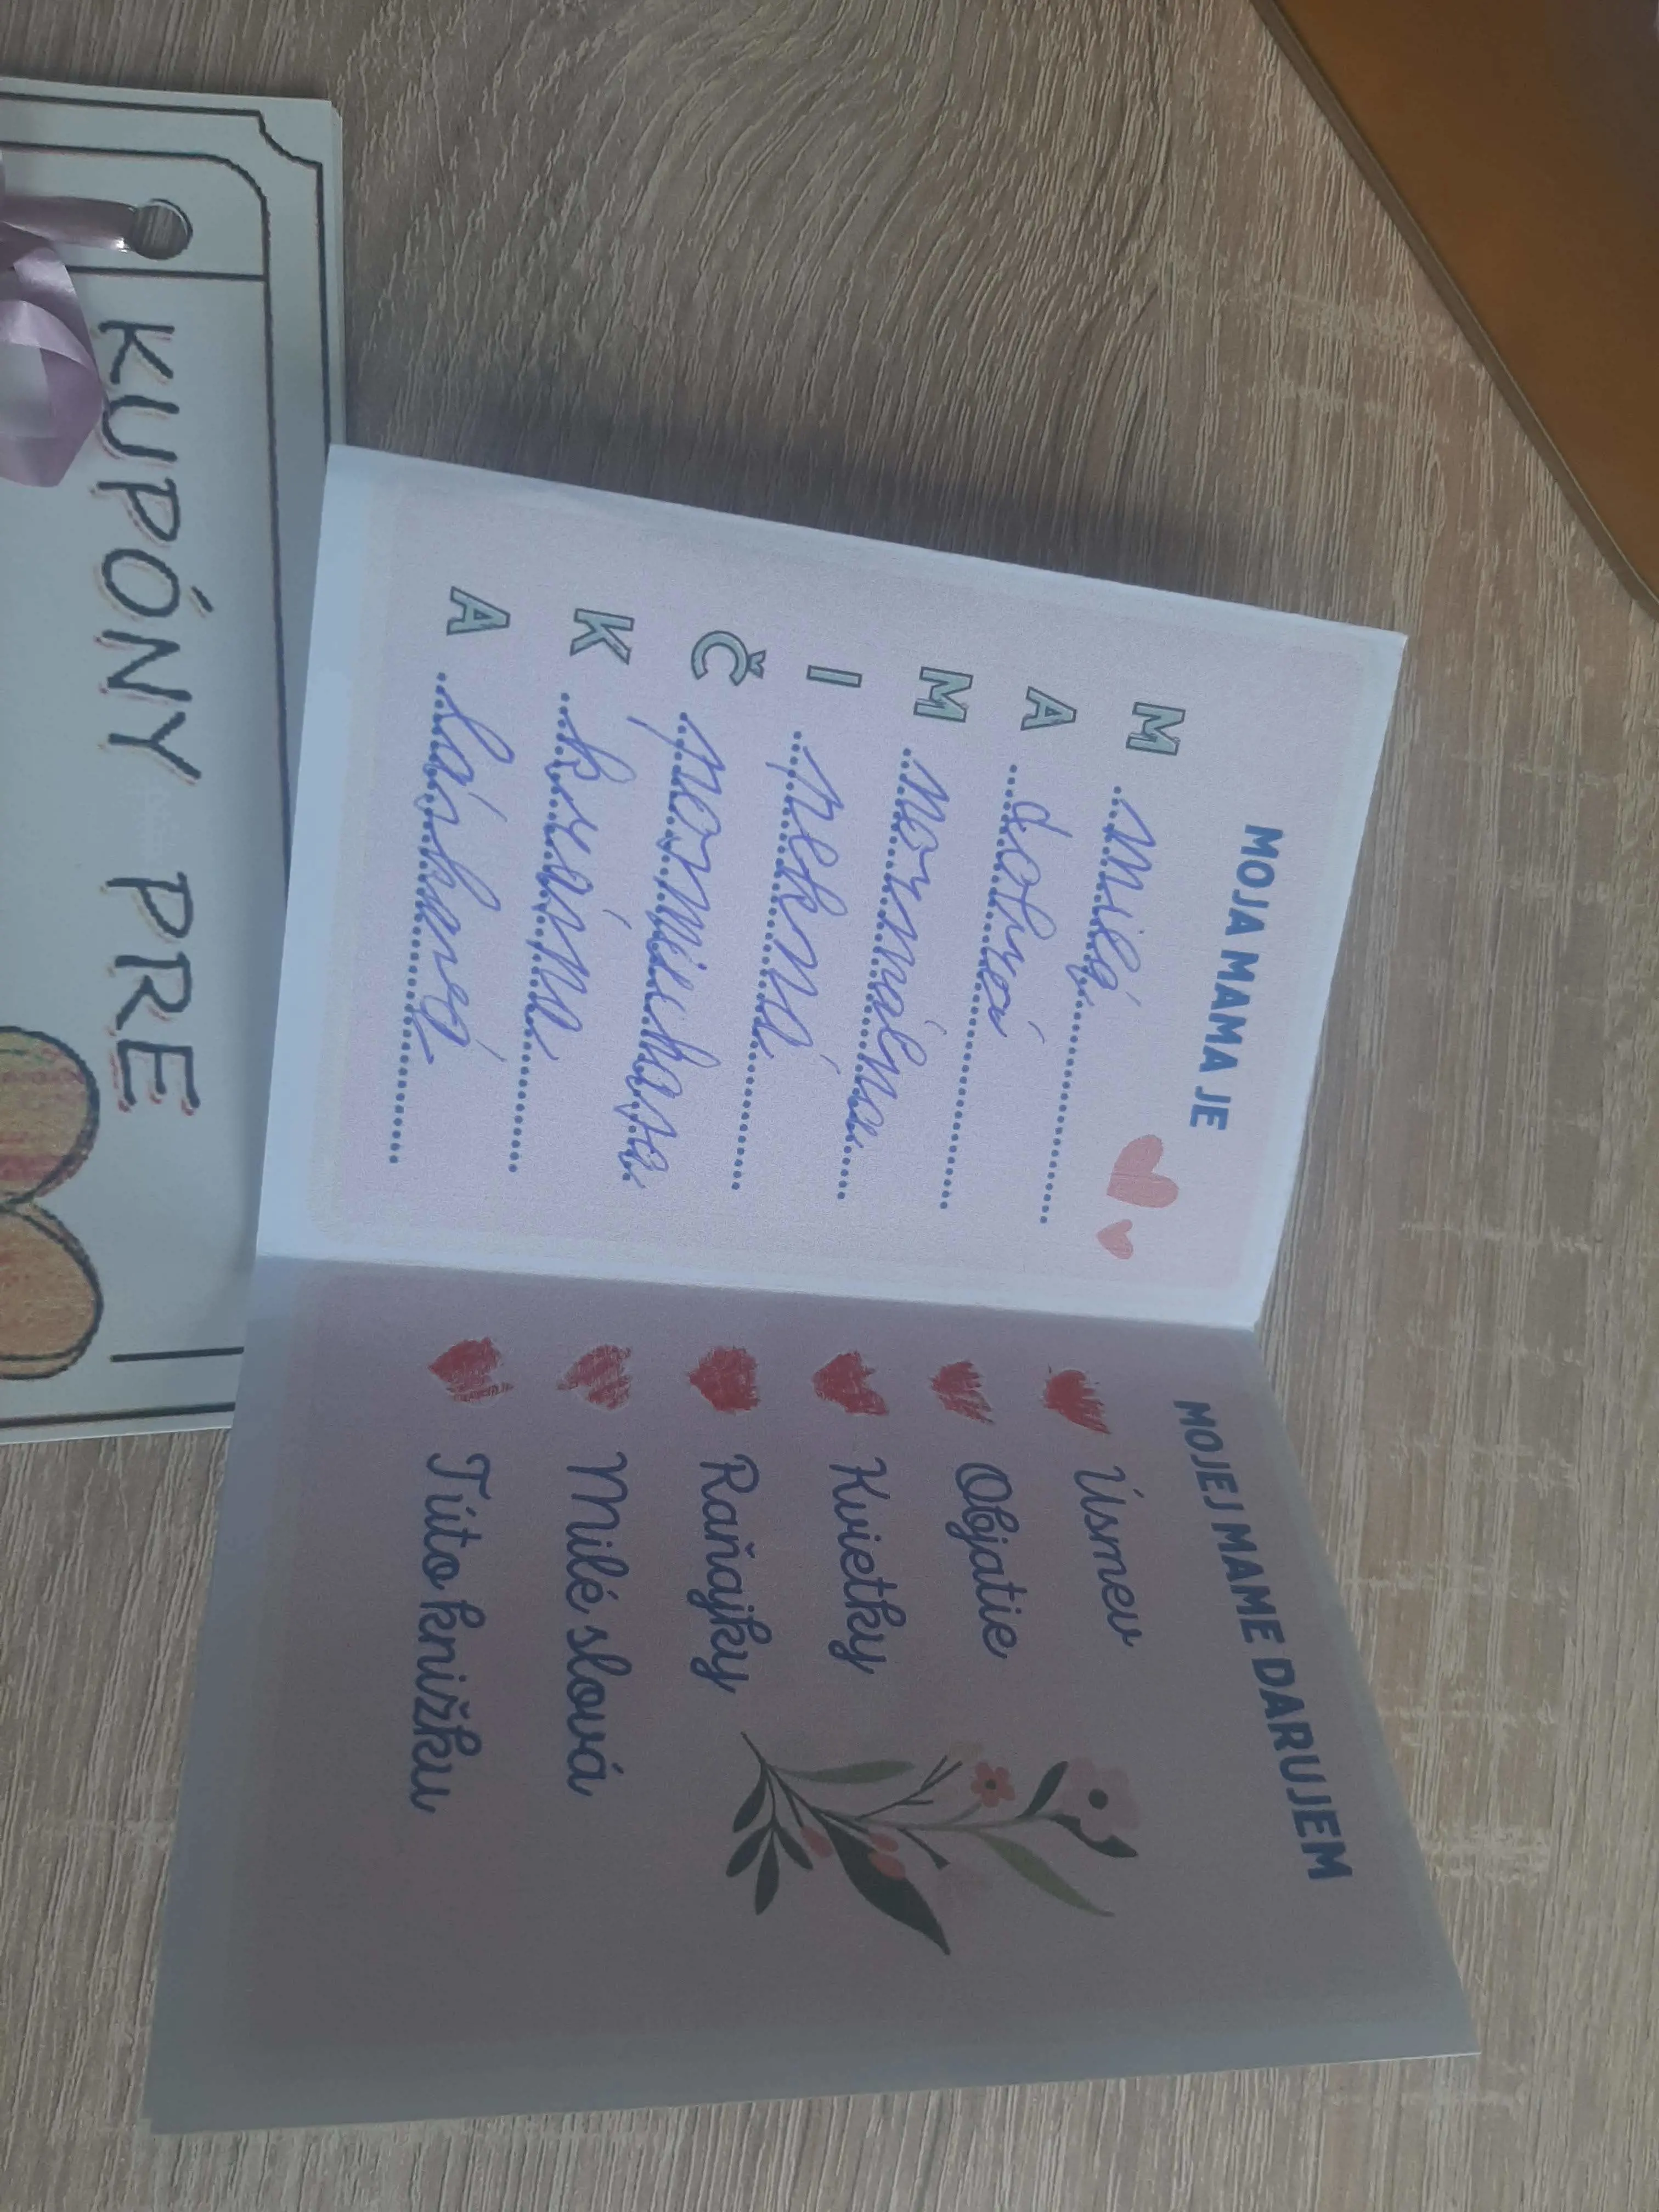 MOJA MAMA JE
M milá
A dobrá
M normálna
I pekná
Č pomáhava
K krásna
A láskavá
MOJEJ MAME DARUJEM
Úsmev
Objatie
Kvietky
Raňajky
Milé slová
Túto knižku
KUPÓNY PRE